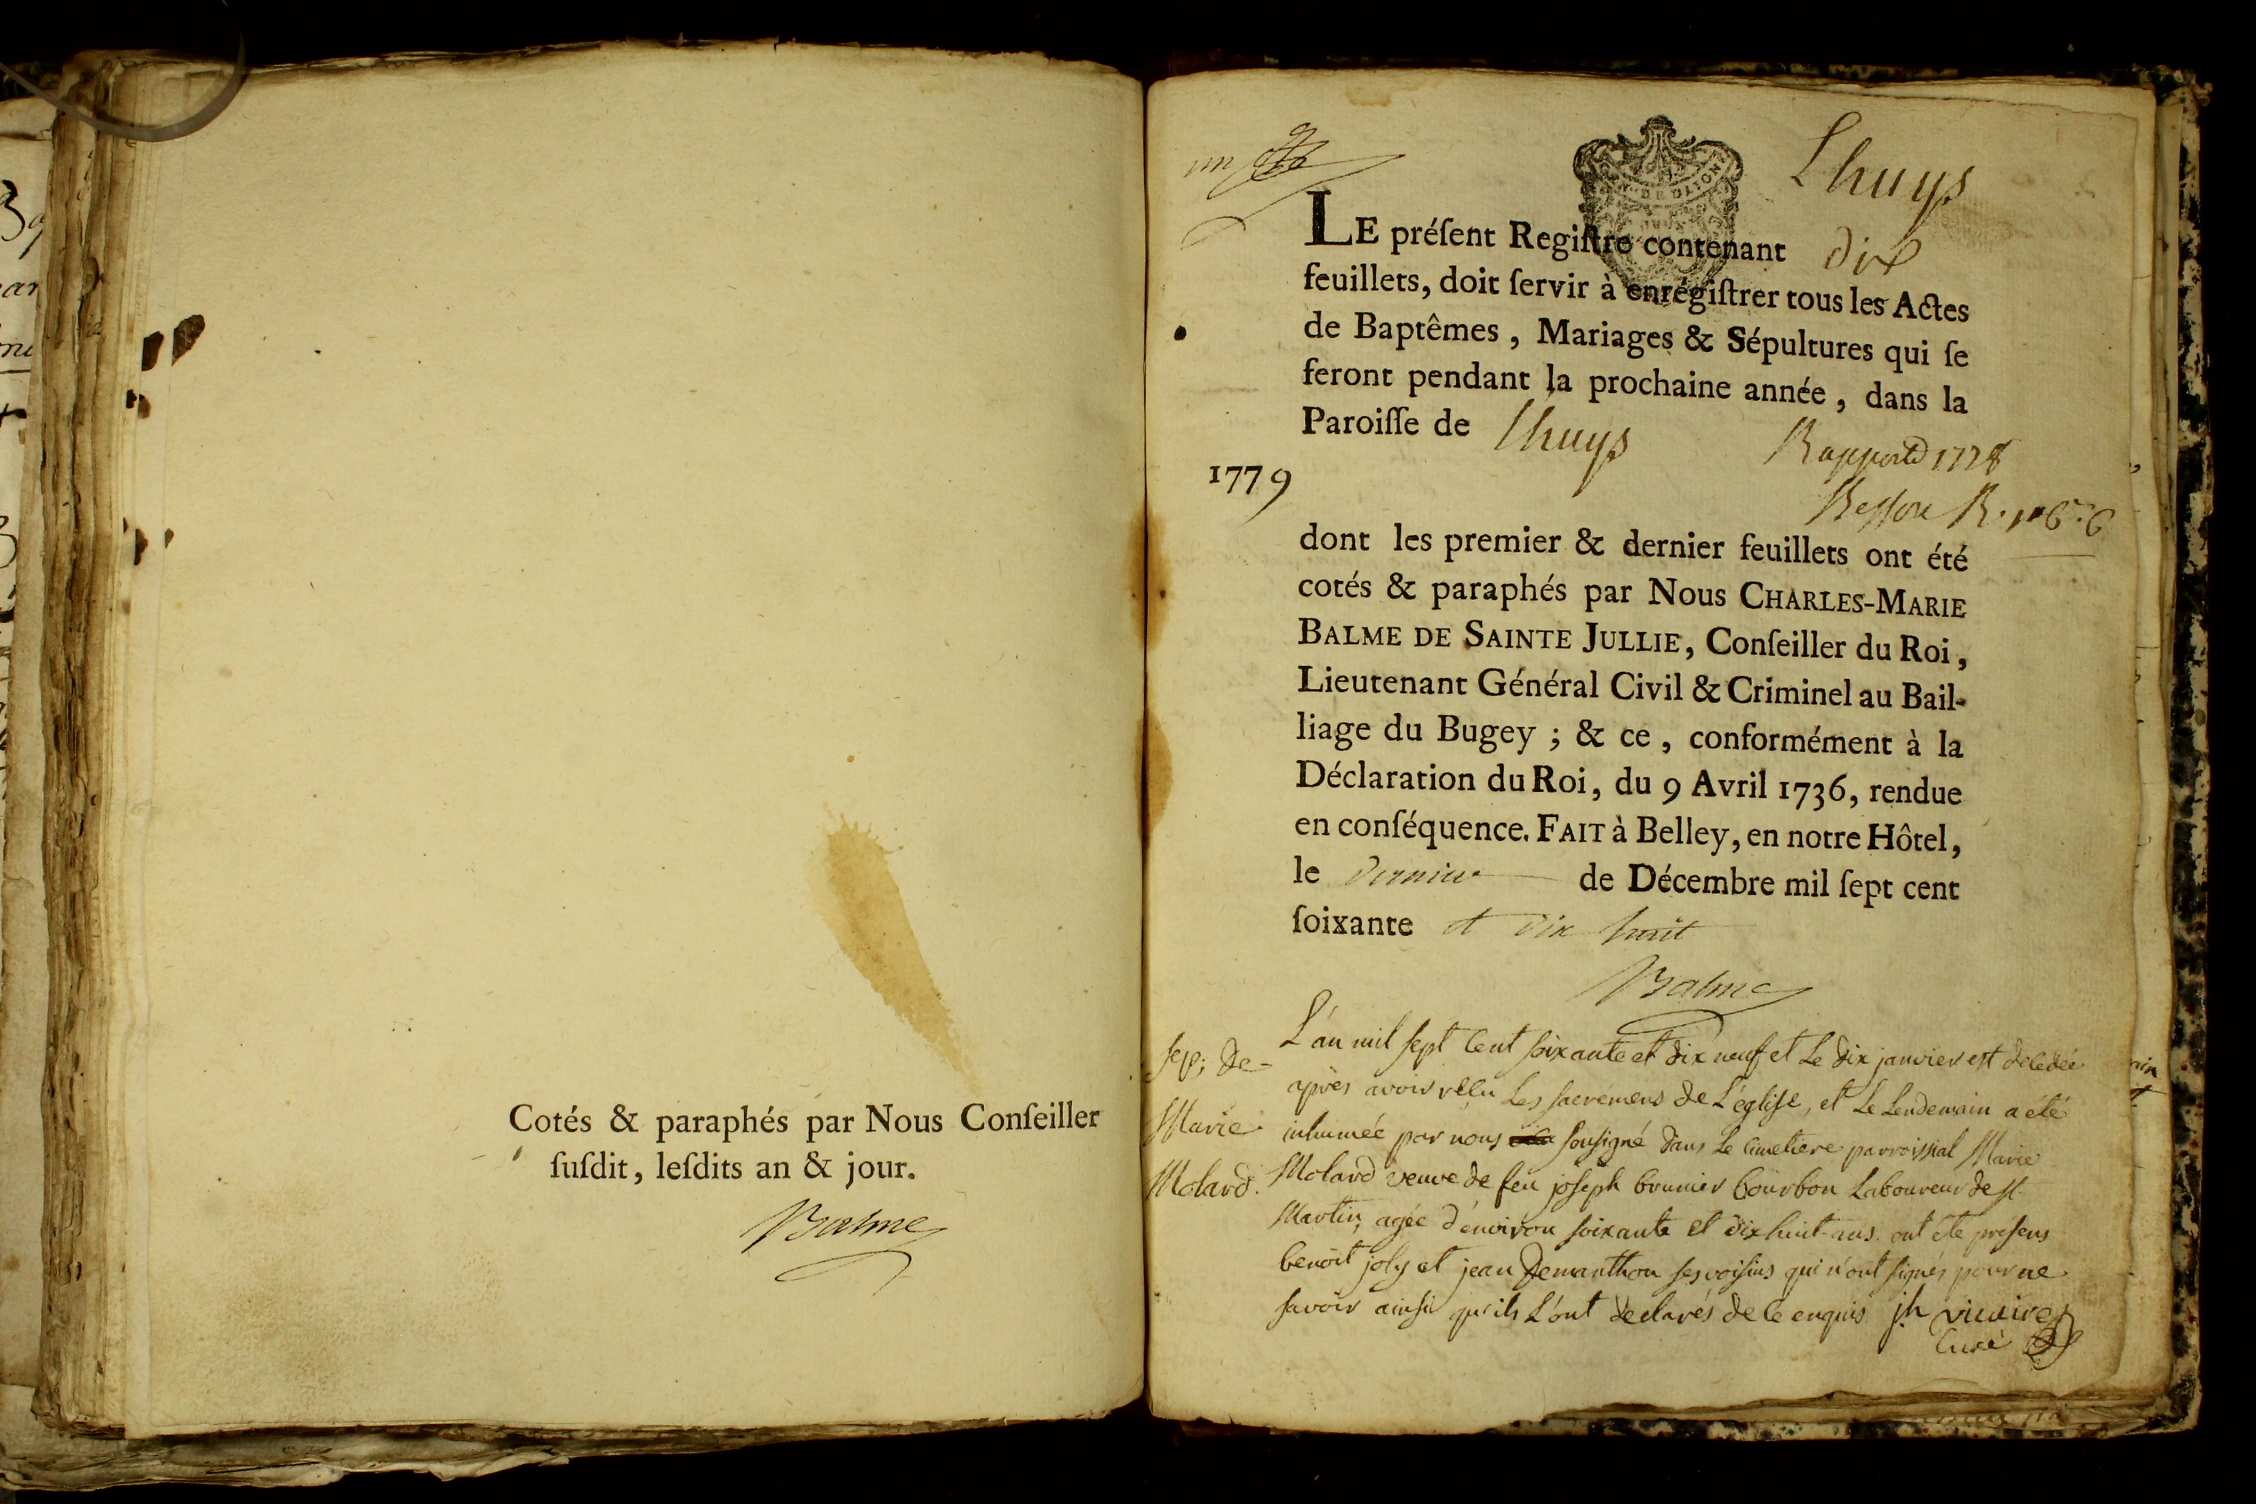 Cotés & paraphés par Nous Conſeiller
ſuſdit, leſdits an & jour.
Balme
un
Lhuys
DE DIJON
LE préſent Regiſtre contenant dix
feuillets, doit ſervir à enrégiſtrer tous les Actes
de Baptêmes, Mariages & Sépultures qui ſe
feront pendant la prochaine année, dans la
Paroiſſe de Lhuys
Rapporté 1778
1779
dont les premier & dernier feuillets ont été
cotés & paraphés par Nous CHARLES-MARIE
BALME DE SAINTE JULLIE, Conſeiller du Roi,
Lieutenant Général Civil & Criminel au Bail-
liage du Bugey; & ce, conformément à la
Déclaration du Roi, du 9 Avril 1736, rendue
en conſéquence. FAIT à Belley, en notre Hôtel,
le dernier de Décembre mil ſept cent
ſoixante et dix huit
Balme
Sep; de
Marie
Molard.
L'an mil sept cent soixante et dix neuf et le dix janvier est décédée
après avoir reçu les sacrémens de L'église, et Le Lendemain a été
inhumée par nous soussigné dans le cimetiere parroissial Marie
Molard veuve de feu joseph brunier bourbon Laboureur de st.
Martin, agée d'énviron soixante et dix huit ans. ont été présens
benoit joly et jean Demanthon ses voisins qui n'ont signés pour ne
savoir ainsi qu'ils L'ont declarés de ce enquis jh vicaire
Curé